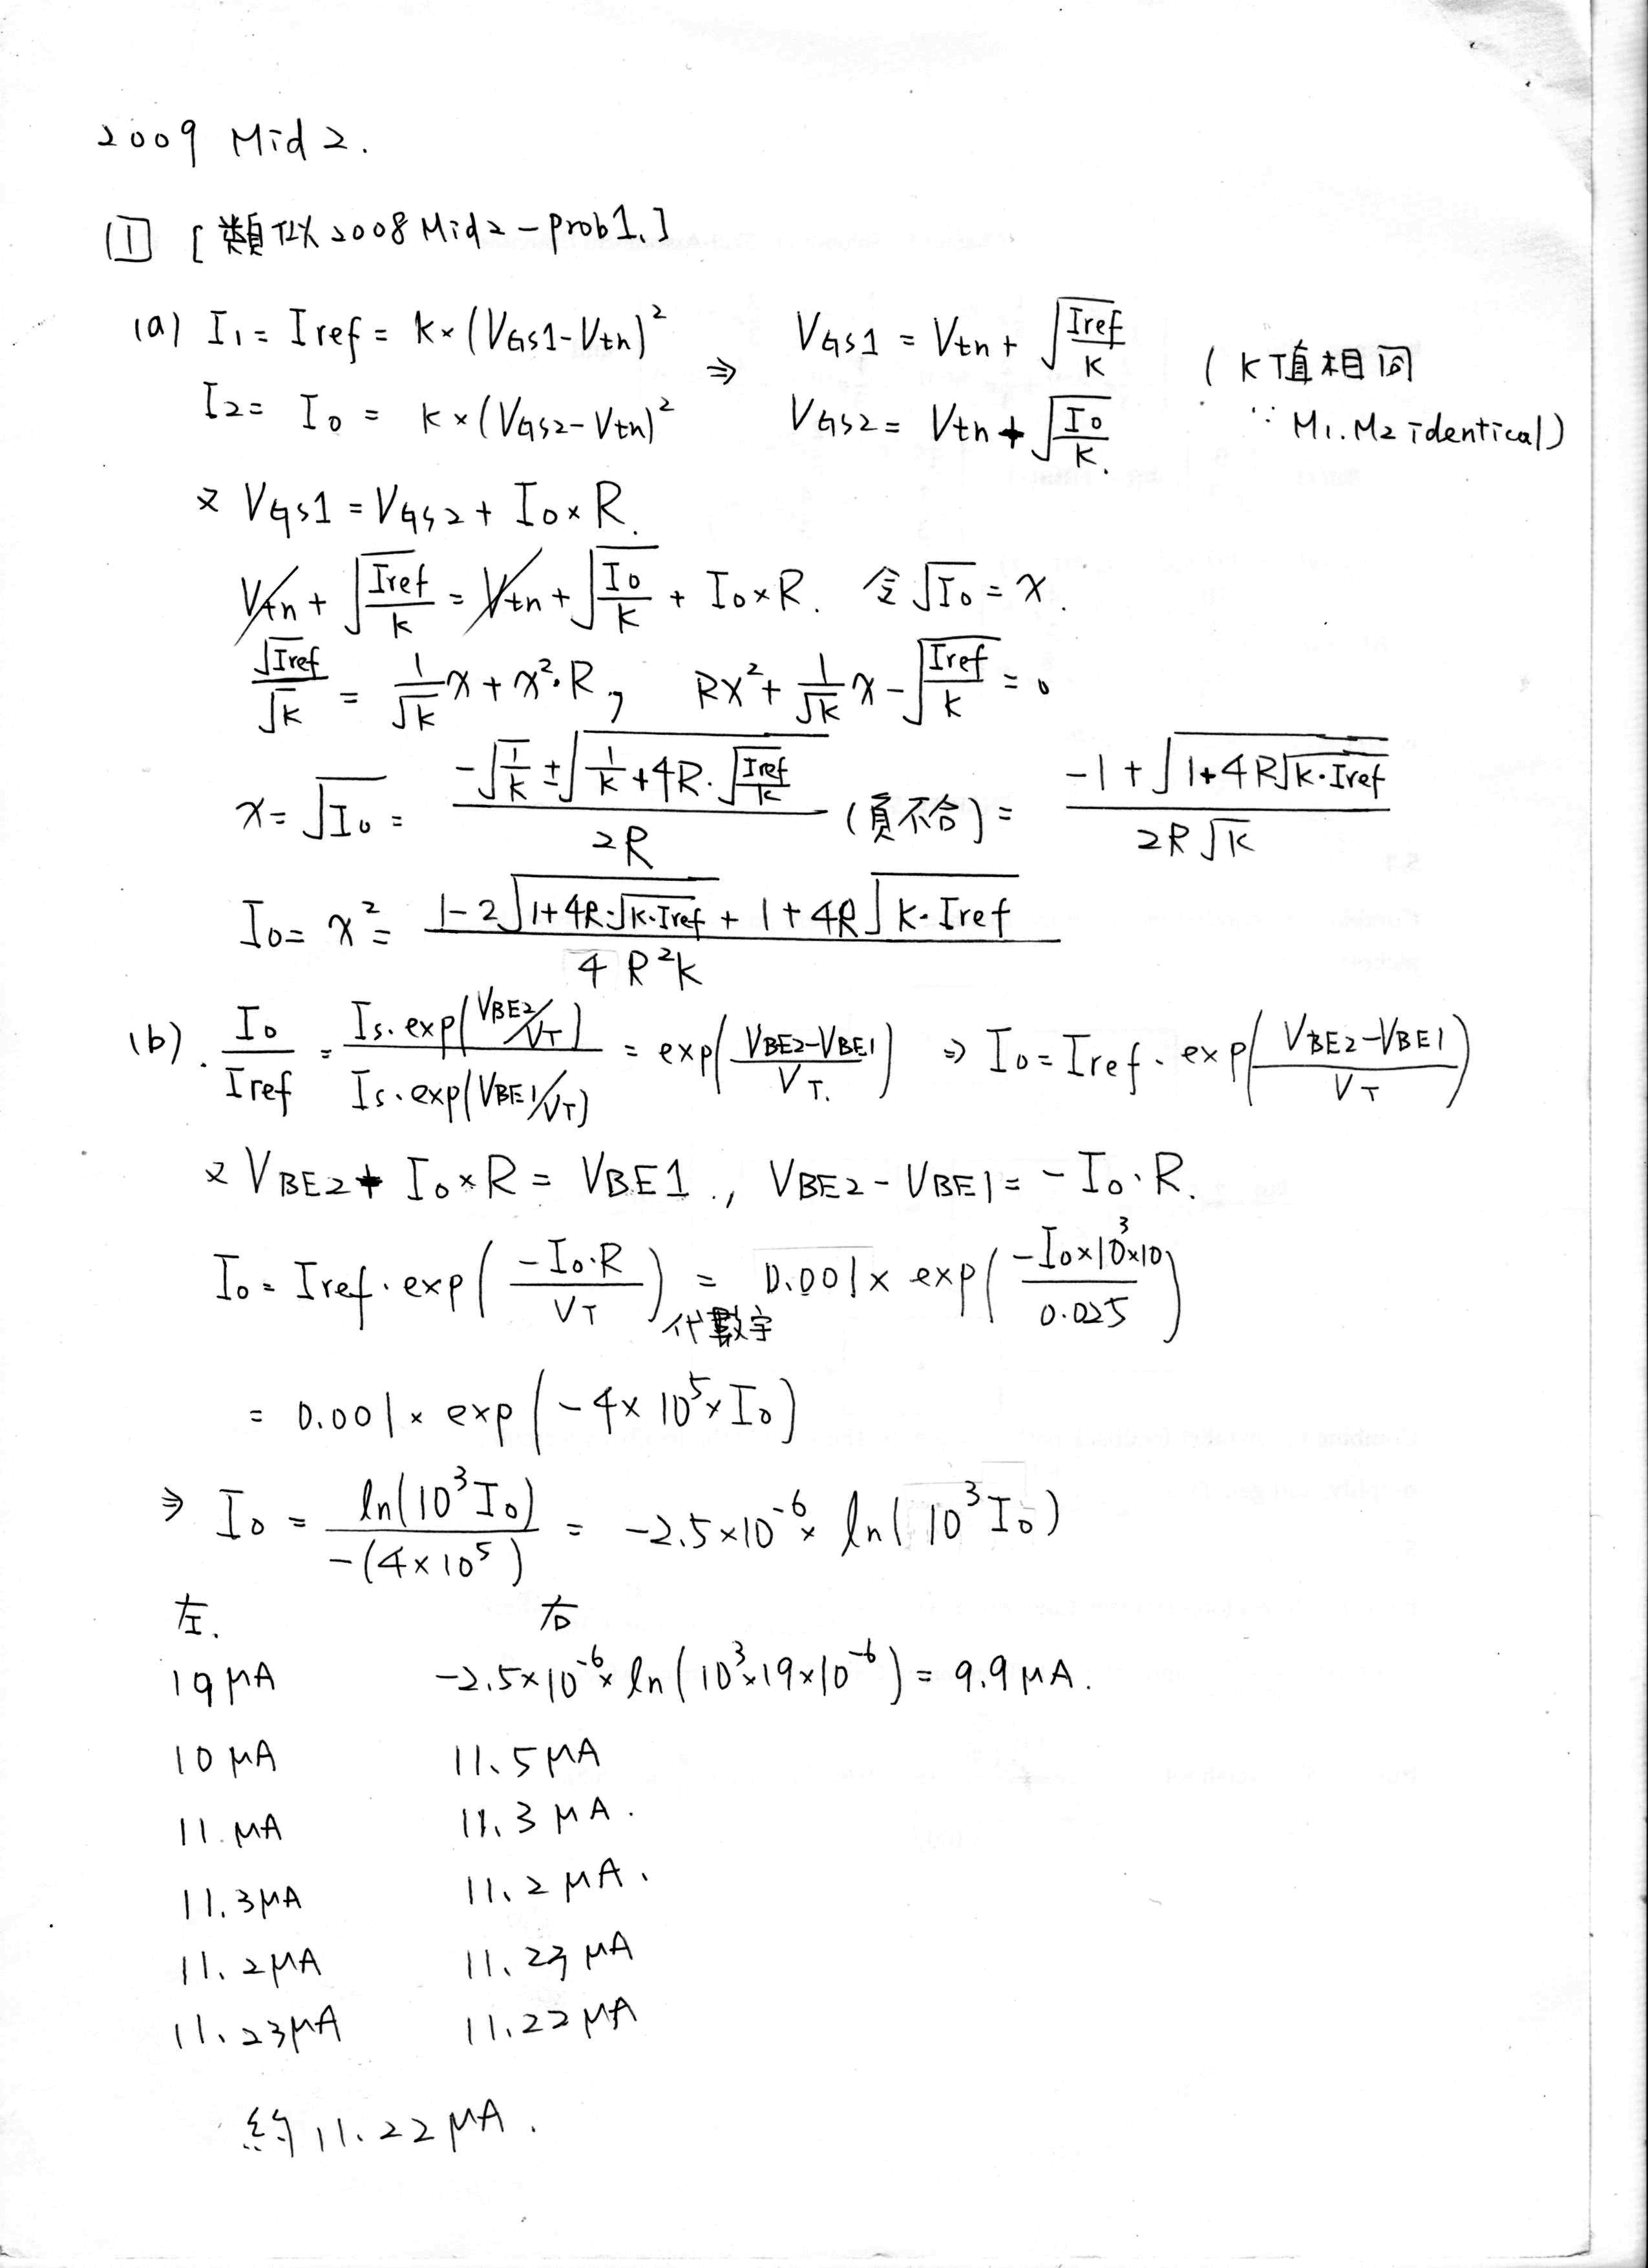 2009 Mid 2.
1 [類似 2008 Mid2 - prob1.]
(a) I1 = Iref = K × (VGS1 - Vtn)² ⇒ VGS1 = Vtn + √(Iref/K) (K值相同
I2 = I0 = K × (VGS2 - Vtn)² VGS2 = Vtn + √(I0/K). ∵ M1. M2 identical)
又 VGS1 = VGS2 + I0 × R.
Vtn + √(Iref/K) = Vtn + √(I0/K) + I0 × R. 令 √I0 = x.
√Iref/√K = 1/√K x + x²·R, Rx² + 1/√K x - √(Iref/K) = 0
x = √I0 = (-√(1/K) ± √(1/K + 4R·√(Iref/K))) / 2R (負不合) = (-1 + √(1+4R√(K·Iref))) / 2R√K
I0 = x² = (1 - 2√(1+4R·√(K·Iref)) + 1 + 4R√(K·Iref)) / 4R²K
(b). I0/Iref = Is·exp(VBE2/VT) / Is·exp(VBE1/VT) = exp((VBE2-VBE1)/VT.) ⇒ I0 = Iref·exp((VBE2-VBE1)/VT)
又 VBE2 + I0 × R = VBE1., VBE2 - VBE1 = -I0·R.
I0 = Iref·exp(-I0·R/VT) 代數字 = 0.001 × exp(-I0×10³×10/0.025)
= 0.001 × exp(-4 × 10⁵ × I0)
⇒ I0 = ln(10³I0) / -(4×10⁵) = -2.5×10⁻⁶ × ln(10³I0)
左. 右
19 μA -2.5×10⁻⁶ × ln(10³×19×10⁻⁶) = 9.9 μA.
10 μA 11.5 μA
11. μA 11.3 μA.
11.3 μA 11.2 μA.
11.2 μA 11.23 μA
11.23 μA 11.22 μA
約 11.22 μA.